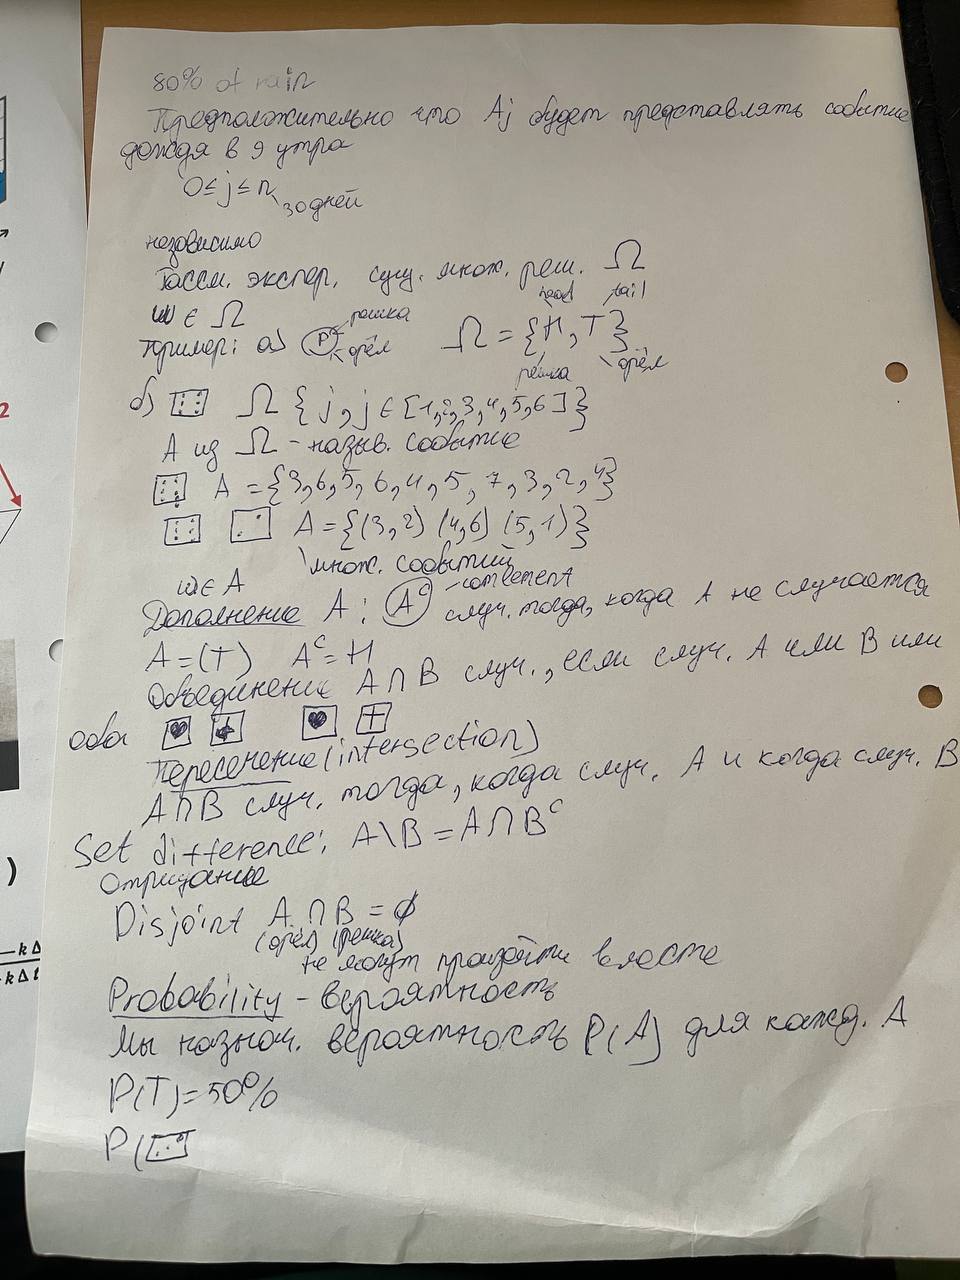 80% of rain
Предположительно что Aj будет представлять событие
дождя в 9 утра
0≤j≤n 30 дней
независимо
Рассм. экспер. сущ. множ. реш. Ω
ω ∈ Ω
head tail
Пример: а) P решка орёл Ω = {H, T}
решка орёл
б) Ω {j, j ∈ [1,2,3,4,5,6]}
A из Ω - назыв. событие
A = {3,6,5,6,4,5,7,3,2,4}
A = {(3,2) (4,6) (5,1)}
множ. событий
ω ∈ A
Дополнение A: Aᶜ comlement случ. тогда, когда A не случается
A = (T) Aᶜ = H
Объединение A ∩ B случ., если случ. A или B или
оба
Пересечение (intersection)
A ∩ B случ. тогда, когда случ. A и когда случ. B
Set difference: A \ B = A ∩ Bᶜ
Отрицание
Disjoint A ∩ B = ∅
(орёл) (решка)
не могут произойти вместе
Probability - вероятность
Мы назнач. вероятность P(A) для кажд. A
P(T) = 50%
P(
2
)
-kΔ
-kΔt